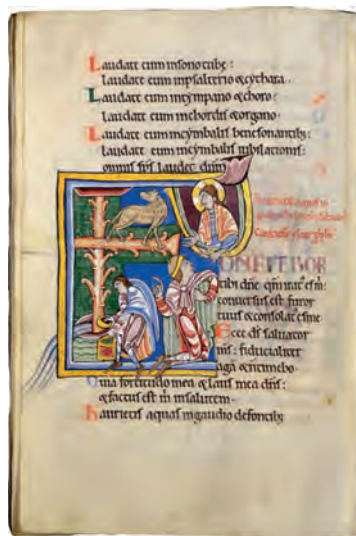 Laudate eum insono tubę:
laudate eum inpsalterio &cythara.
Laudate eum intympano &choro:
laudate eum inchordis &organo.
Laudate eum incymbalis benesonantib;
laudate eum incymbalis iubilationis:
omnis sp̄s laudet dn̄m
CONFITEBOR
tibi dn̄e qm̄ irat' es m̄:
conuersus est furor
tuus &consolat' es me
Ecce ds̄ saluator
ms̄: fiducialiter
agā &ntimebo.
Quia fortitudo mea &laus mea dn̄s:
&factus est m̄ insalutem.
Haurietis aquas ingaudio defontib;